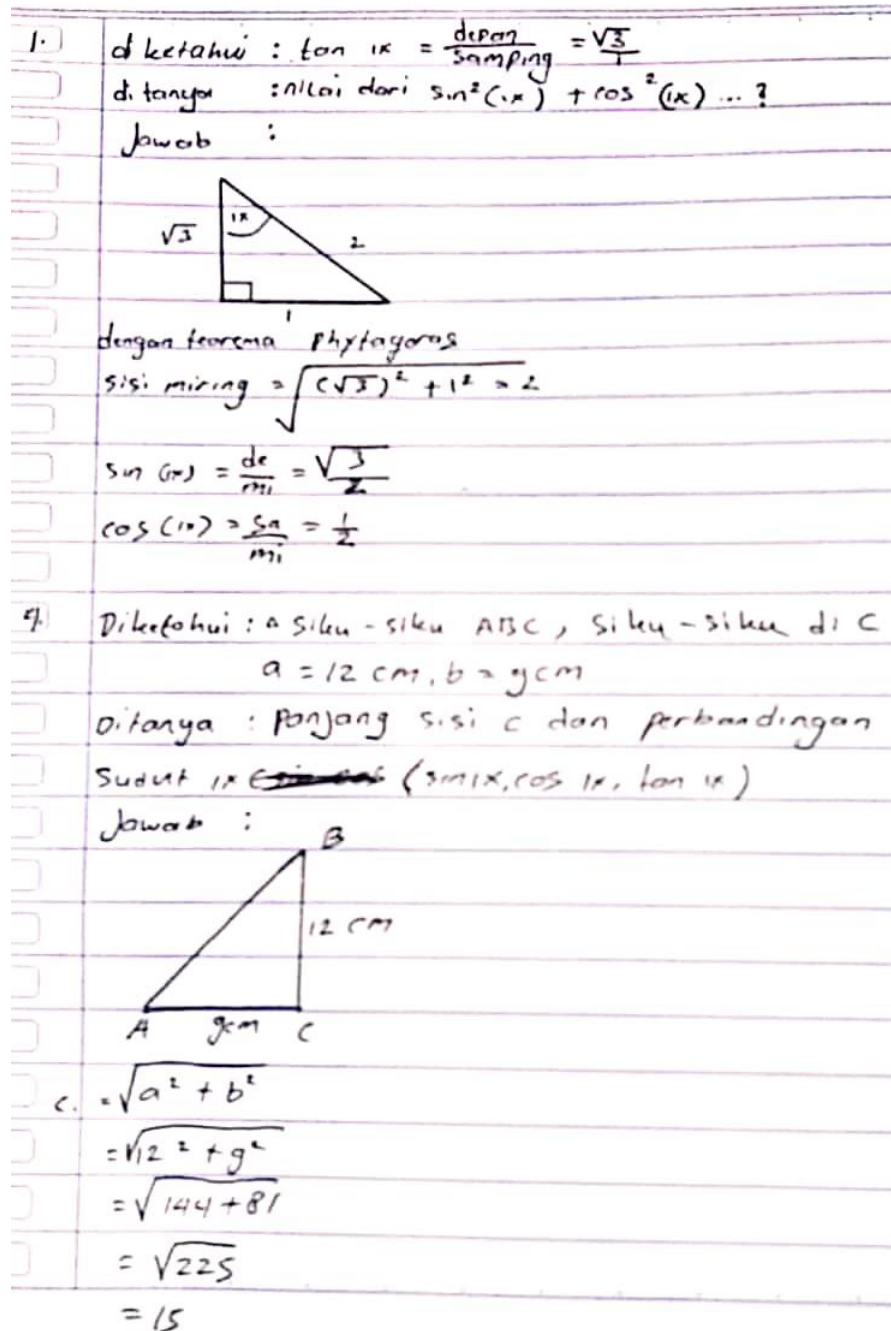 1. diketahui : tan α = depan/samping = √3/1
ditanya : nilai dari sin² (α) + cos² (α) ... ?
Jawab :
α
√3 2
1
dengan teorema phytagoras
sisi miring = √(√3)² + 1² = 2
sin (α) = de/mi = √3/2
cos (α) = sa/mi = 1/2
Diketahui : Δ siku - siku ABC, siku - siku di C
a = 12 cm, b = 9 cm
Ditanya : panjang sisi c dan perbandingan
sudut α (sin α, cos α, tan α)
Jawab :
B
12 cm
A 9cm C
c. = √a² + b²
= √12² + 9²
= √144 + 81
= √225
= 15